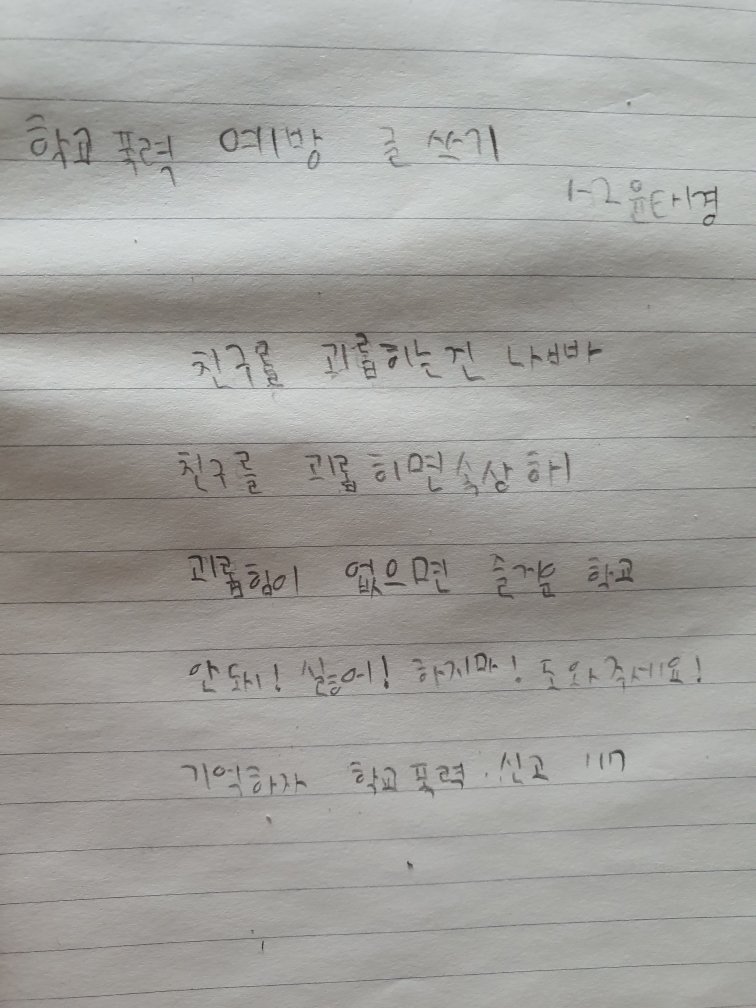 학교폭력 예방 글 쓰기
1-2 윤태경
친구를 괴롭히는건 나빠
친구를 괴롭히면 속상해
괴롭힘이 없으면 즐거운 학교
안돼! 싫어! 하지마! 도와주세요!
기억하자 학교폭력 신고 117